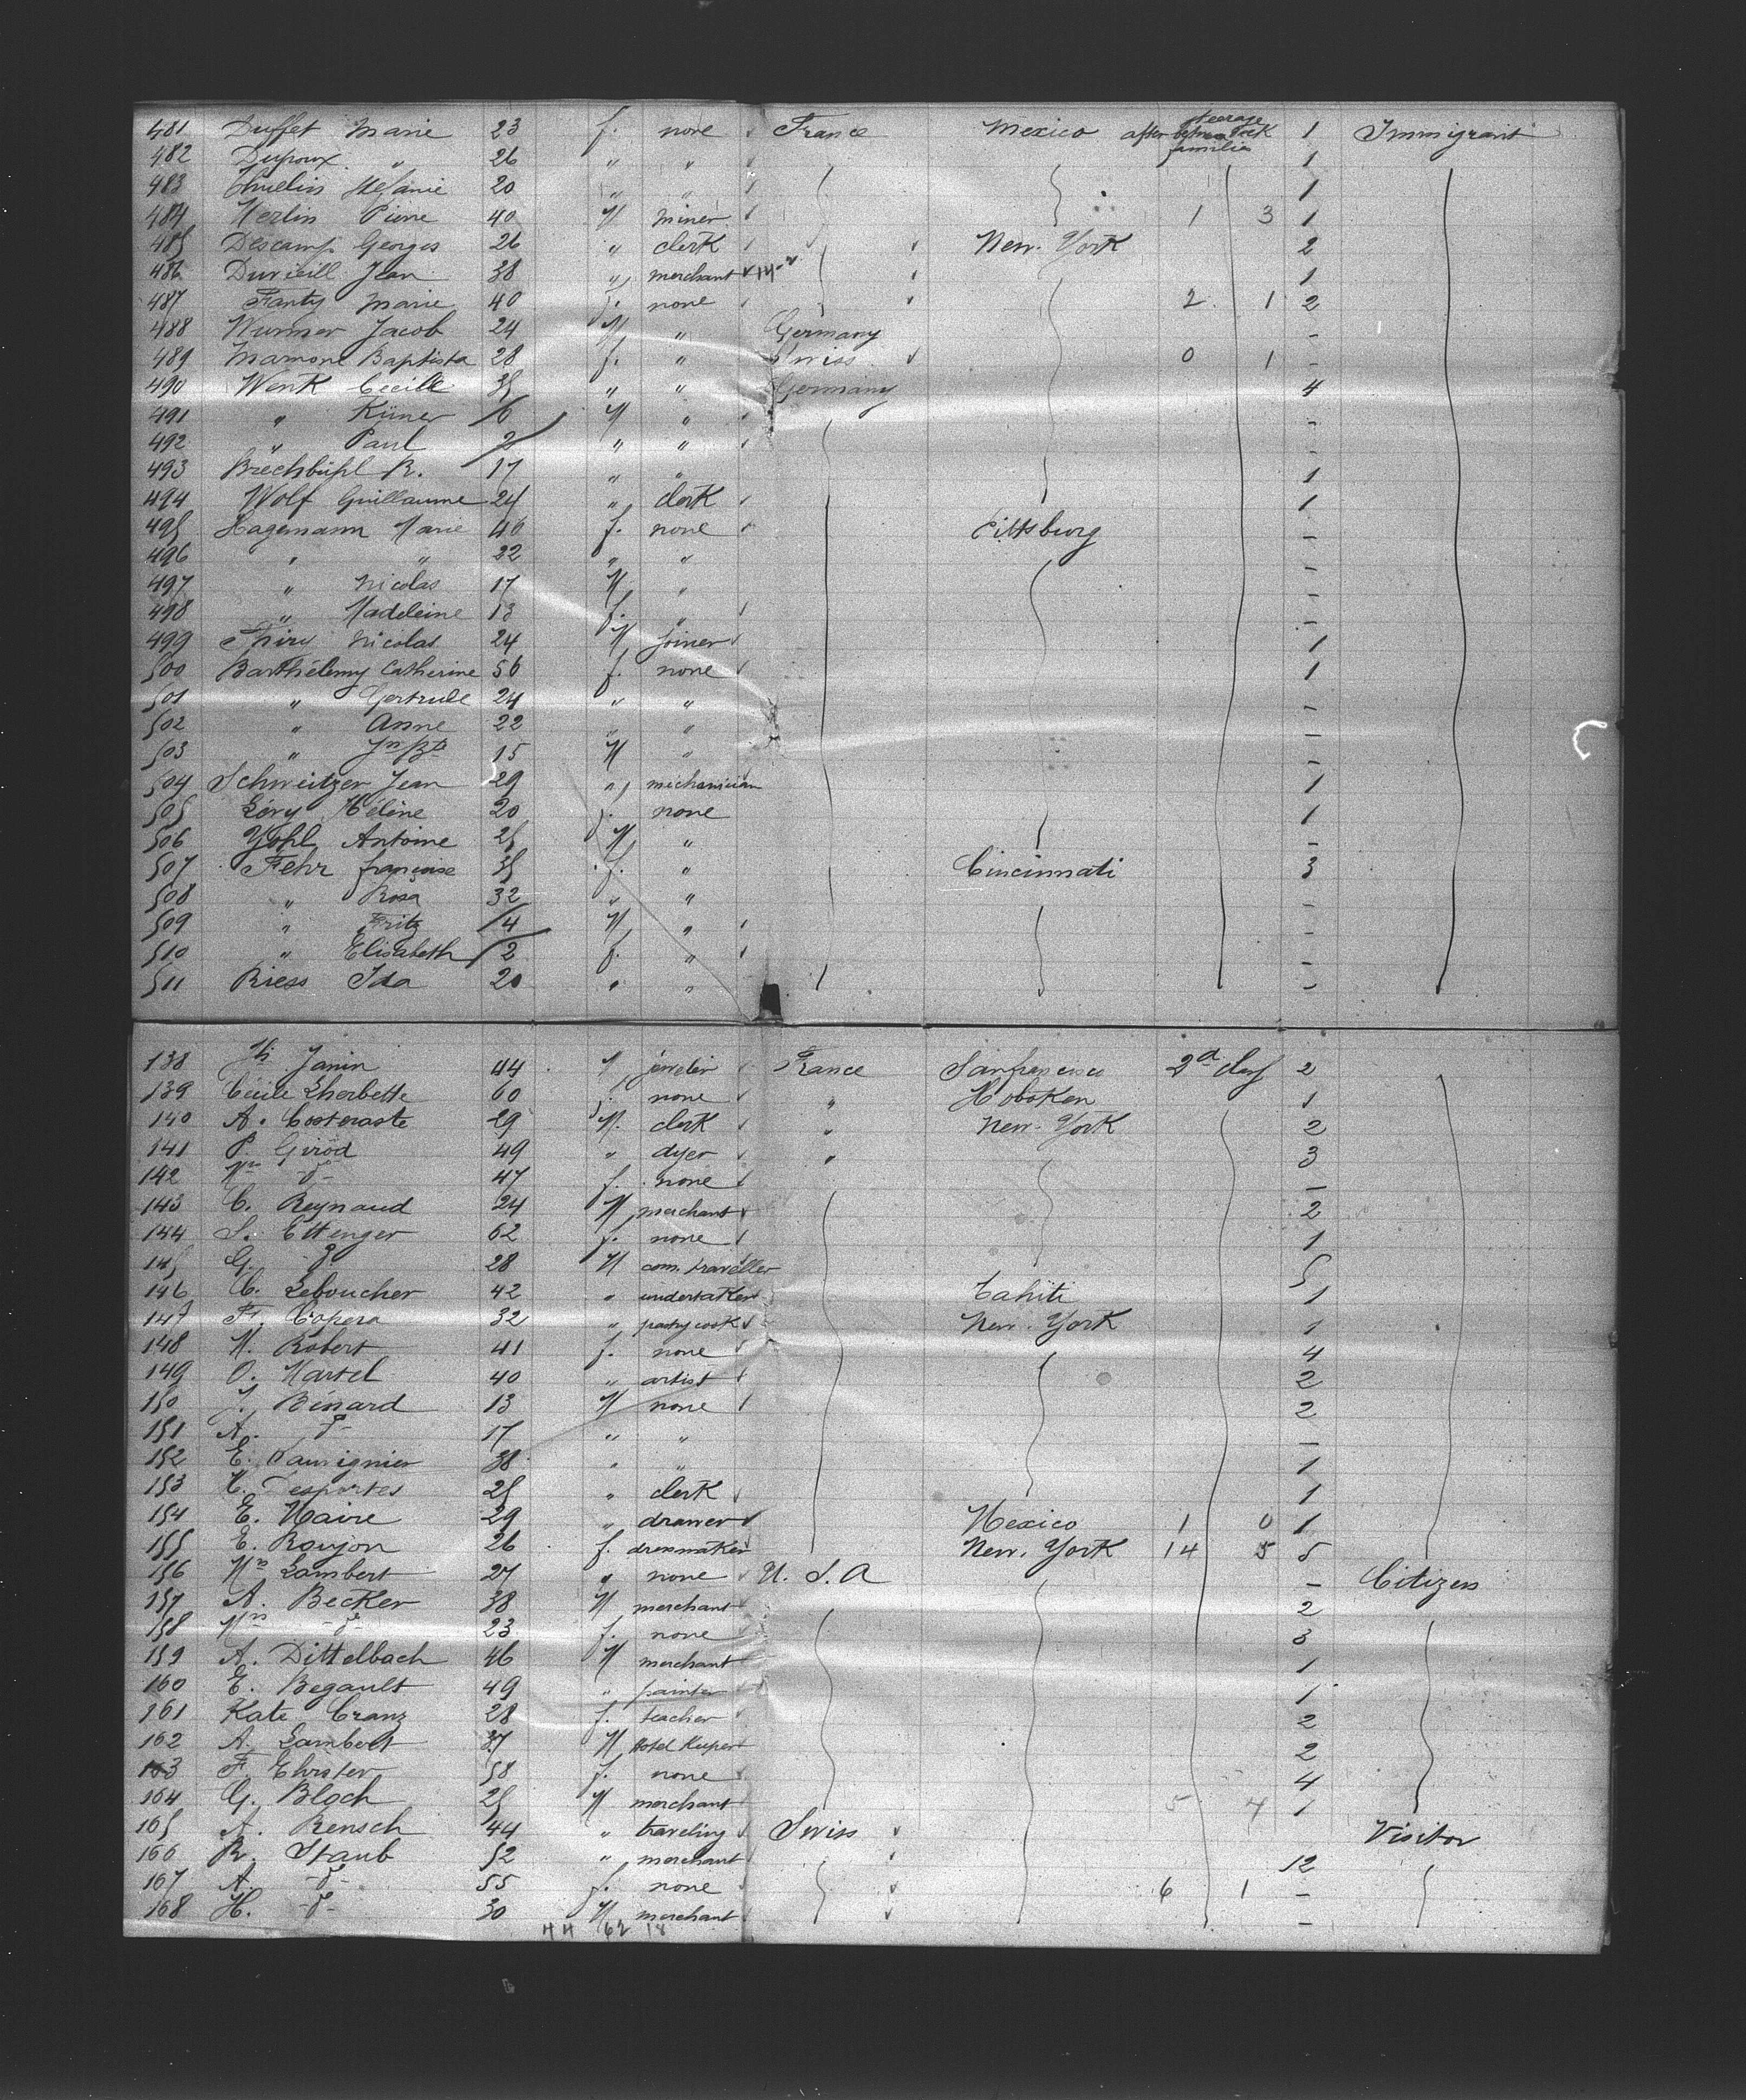 481 Duffet Marie 23 f. none France Mexico after steerage between deck families 1 Immigrant
482 Dupoux " 26 " " 1
483 Thuelin Stefanie 20 " " 1
484 Merlin Pierre 40 M miner 1 3 1
485 Descamp Georges 26 " clerk New-York 2
486 Durieill Jean 38 " merchant 1
487 Fanty Marie 40 f. none 2 1 2
488 Wurmer Jacob 24 M " Germany -
489 Mamone Baptista 28 f. " Swiss 0 1 -
490 Wenk Cecile 35 " " Germany 4
491 " 6 M " -
492 " Paul 2 " " -
493 Brechbühl R. 17 " " 1
494 Wolf Guillaume 24 " clerk 1
495 Hagemann Marie 46 f. none Pittsburg -
496 " " 22 " " -
497 " Nicolas 17 M " -
498 " Madeleine 13 f. " -
499 Thiry Nicolas 24 M joiner 1
500 Barthélemy Catherine 56 f. none 1
501 " Gertrude 24 " " -
502 " Anne 22 " " -
503 " Jn Bte 15 M " -
504 Schweitzer Jean 29 " mechanician 1
505 Lévy Hélène 20 f. none 1
506 Yohl Antoine 25 M " -
507 Fehr françoise 35 f. " Cincinnati 3
508 " Rosa 32 " " -
509 " Fritz 4 M " -
510 " Elisabeth 2 f. " -
511 Riess Ida 20 " " -
138 Janin 44 M jeweler France Sanfrancisco 2d class 2
139 Cécile Lherbette 60 f. none " Hoboken 1
140 A. Costeraste 29 M. clerk " New-York 2
141 P. Girod 49 " dyer " 3
142 Mme -do- 47 f. none -
143 C. Reynaud 24 M merchant 2
144 S. Ettenger 62 f. none 1
145 G. do 28 M com. traveller 5
146 C. Leboucher 42 " undertaker Tahiti 1
147 F. Capera 32 " pastry cook New-York 1
148 M. Robert 41 f. none 4
149 O. Martel 40 " artist 2
150 J. Bénard 13 M none 2
151 A. do- 17 " " -
152 E. Dauvignier 38 " " 1
153 H. Desportes 25 " clerk 1
154 E. Maire 29 " drawer Mexico 1 0 1
155 E. Roujon 26 f. dressmaker New-York 14 5 5
156 Mme Lambert 27 " none U.S.A - Citizen
157 A. Becker 38 M merchant 2
158 Mme -do- 23 f. none 3
159 A. Dittelbach 46 M merchant 1
160 E. Begault 49 " painter 1
161 Kate Cranz 28 f. teacher 2
162 A. Lambert 37 M hotel keeper 2
163 F. Ehrster 58 f. none 4
164 G. Bloch 25 M merchant 5 4 1
165 A. Rensch 44 " traveling Swiss Visitor
166 R. Staub 52 " merchant 12
167 A. -do- 55 f. none 6 1 -
168 H. -do- 30 M merchant -
44 62 18